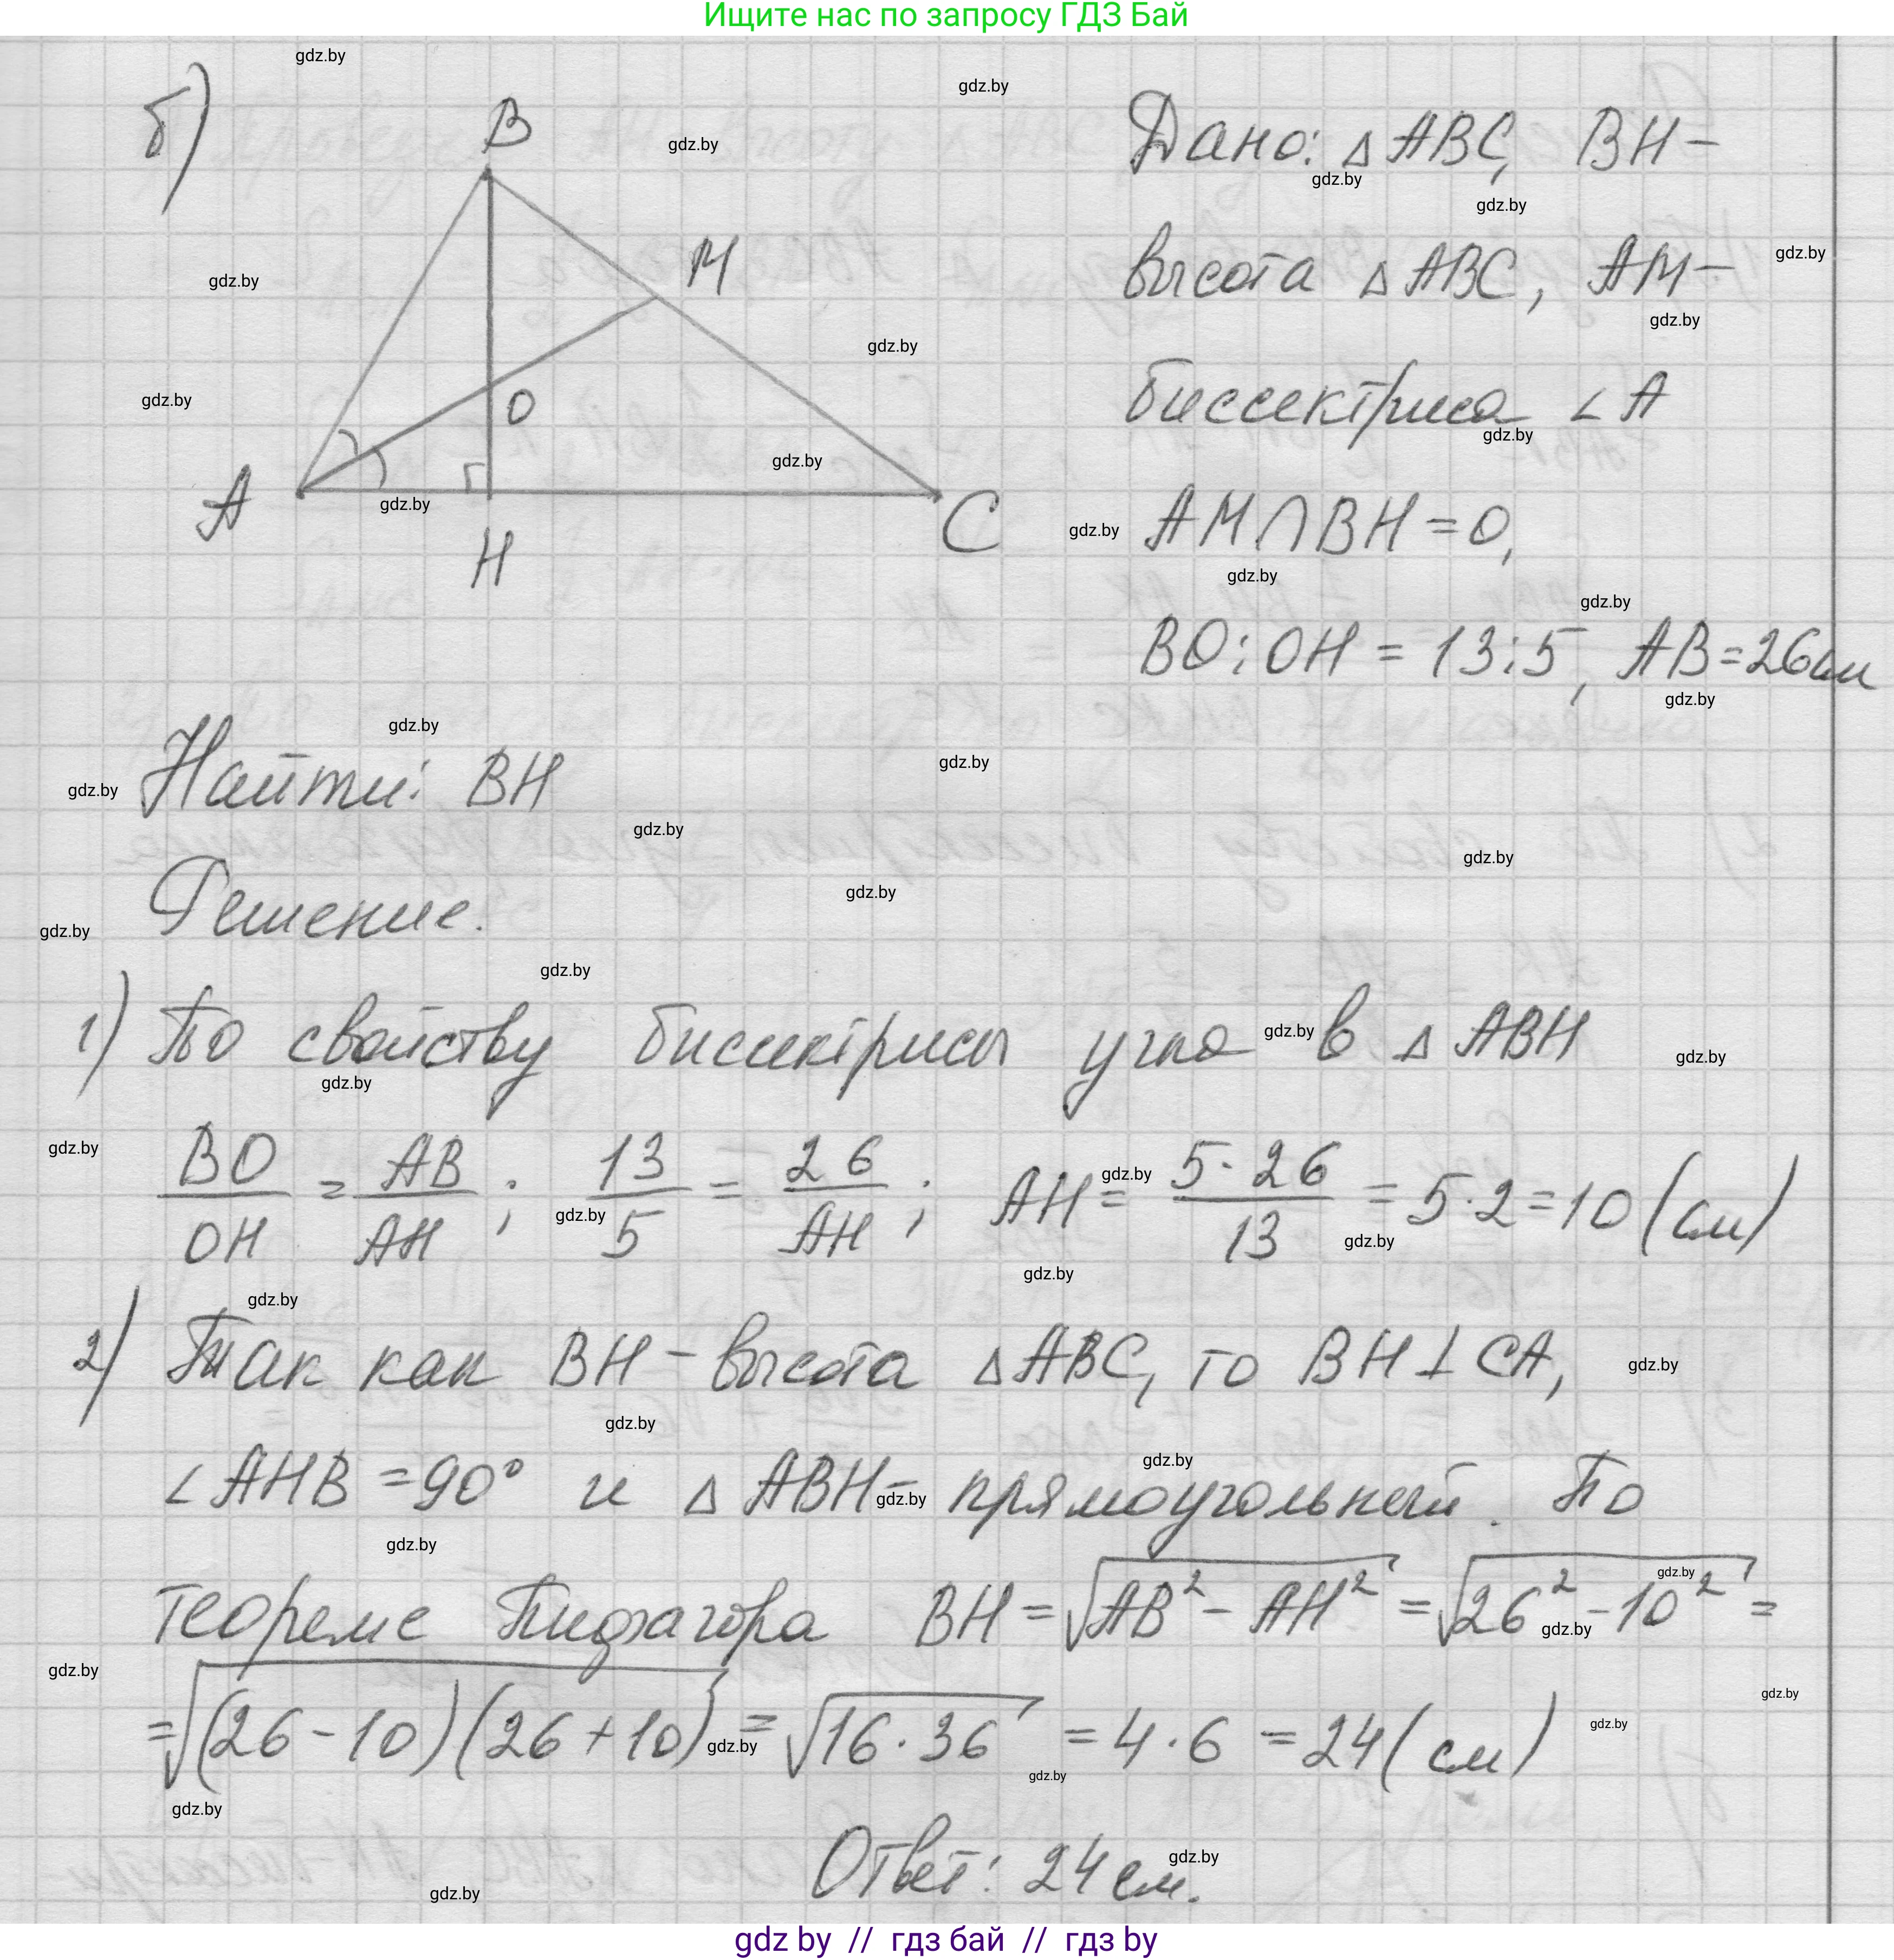 Ищите нас по запросу ГДЗ Бай
б)
B
M
O
A
H
C
Дано: △ABC, BH –
высота △ABC, AM –
биссектриса ∠A
AM∩BH = O,
BO : OH = 13 : 5, AB = 26 см
Найти: BH
Решение.
1) По свойству биссектрисы угла в △ABH
BO/OH = AB/AH; 13/5 = 26/AH; AH = 5·26/13 = 5·2 = 10 (см)
2) Так как BH – высота △ABC, то BH ⊥ CA,
∠AHB = 90° и △ABH – прямоугольный. По
теореме Пифагора BH = √(AB² – AH²) = √(26² – 10²) =
= √((26 – 10)(26 + 10)) = √(16·36) = 4·6 = 24 (см)
Ответ: 24 см.
gdz by // гдз бай // гдз by
gdz.by